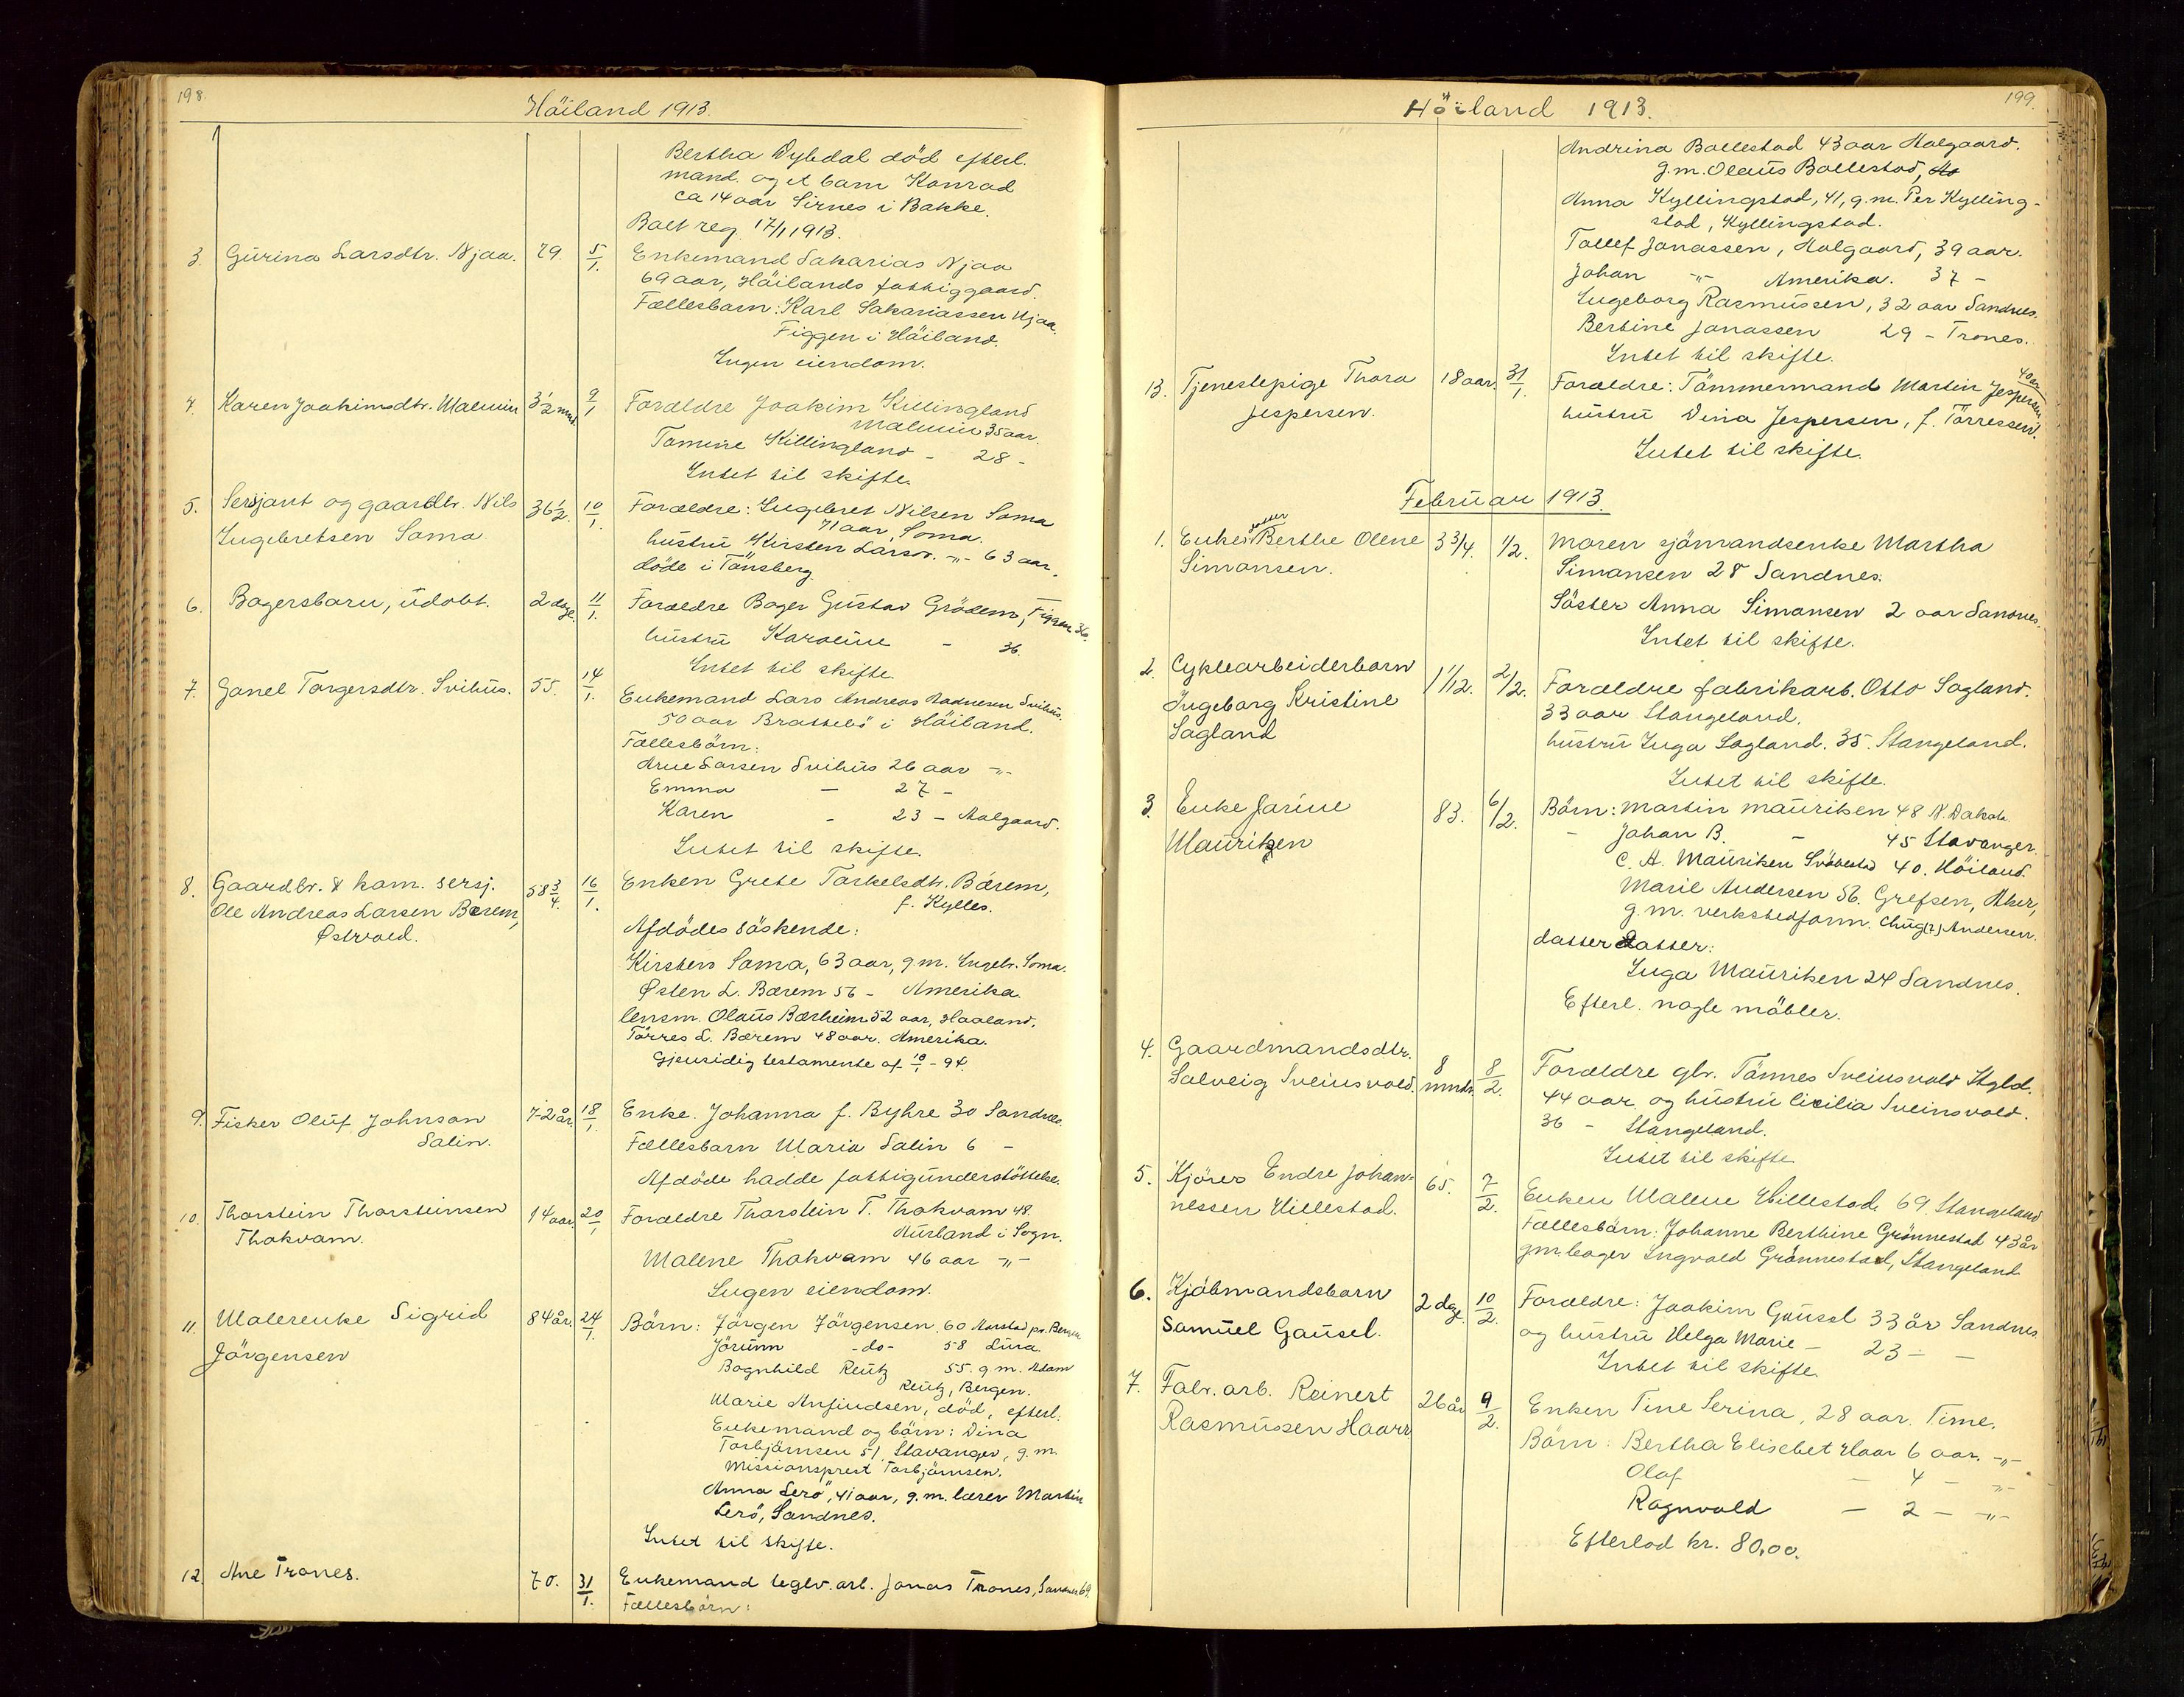 198.
Höiland 1913.
Bertha Dybdal död efterl.
mand og et barn Konrad
ca 14 aar Sirnes i Bakke.
Boet reg. 17/1 1913.
3. Gurina Larsdtr. Njaa. 79. 5/1. Enkemand Sakarias Njaa
69 aar, Höilands fattiggaard.
Fællesbarn: Karl Sakariassen Njaa.
Figgen i Höiland.
Ingen eiendom.
4. Karen Joakimsdtr. Malmin 3 1/2 mnd 9/1 Forældre Joakim Killingland
Malmin 35 aar.
Tomine Killingland - 28 -
Intet til skifte.
5. Sersjant og gaardbr. Nils 36 1/2. 10/1. Forældre: Ingebret Nilsen Soma
Ingebretsen Soma 71 aar, Soma.
hustru Kirsten Larsdr. -"- 63 aar.
döde i Tönsberg.
6. Bagersbarn, udöbt. 2 dage. 11/1. Forældre Bager Gustav Grödem, Figgen 36.
hustru Karoline - 36.
Intet til skifte.
7. Gonel Torgersdtr. Svihus. 55. 14/1. Enkemand Lars Andreas Radnesen Svihus.
50 aar Brattebö i Höiland.
Fællesbörn:
Arne Larsen Svihus 26 aar -"-
Emma - 27 -
Karen - 23 - Aalgaard.
Intet til skifte.
8. Gaardbr. & kom. sersj. 58 3/4. 16/1. Enken Grete Torkelsdtr. Bærem,
Ole Andreas Larsen Bærem, f. Kylles.
Østvold.
Afdödes söskende:
Kirsten Soma, 63 aar, g.m. Ingebr. Soma.
Østen L. Bærem 56 - Amerika.
lensm. Olaus Bærheim 52 aar, Haaland.
Törres L. Bærem 48 aar. Amerika.
Gjensidig testamente af 10/1 - 94.
9. Fisker Oluf Johnson 72 år. 18/1. Enke. Johanna f. Byhre 30 Sandnes.
Salin. Fællesbarn Maria Salin 6 -
Afdöde hadde fattigunderstöttelse.
10. Thorstein Thorsteinsen 14 aar 20/1 Forældre Thorstein T. Thokvam 48.
Thokvam. Aurland i Sogn.
Malene Thokvam 46 aar -"-
Ingen eiendom.
11. Malerenke Sigrid 84 år. 24/1. Börn: Jörgen Jörgensen. 60 Aarstad pr. Bergen
Jörgensen Jörunn -do- 58 Lura.
Bognhild Reutz 55. g.m. Adam
Reutz, Bergen.
Marie Anfindsen, död, efterl.
Enkemand og börn: Dina
Torbjörnsen 51. Stavanger, g.m.
Missionsprest Torbjörnsen.
Anna Lerö, 41 aar, g.m. lærer Martin
Lerö, Sandnes.
Intet til skifte.
12. Ane Trones. 70. 31/1. Enkemand teglv. arb. Jonas Trones, Sandnes 69.
Fællesbörn:
199.
Höiland 1913.
Andrina Bollestad 43 aar Aalgaard.
g.m. Olaus Bollestad,
Anna Kyllingstad, 41, g.m. Per Kylling-
stad, Kyllingstad.
Tollef Jonassen, Aalgaard, 39 aar.
Johan -"- Amerika. 37 -
Ingeborg Rasmussen, 32 aar Sandnes.
Bertine Jonassen 29 - Trones.
Intet til skifte.
13. Tjenestepige Thora 18 aar. 31/1. Forældre: Tömmermand Martin Jespersen 40 aar
Jespersen. hustru Dina Jespersen, f. Törressen.
Intet til skifte.
Februar 1913.
1. Enkes datter Berthe Olene 3 3/4. 1/2. Moren sjömandsenke Martha
Simonsen. Simonsen 28 Sandnes.
Söster Anna Simonsen 2 aar Sandnes.
Intet til skifte.
2. Cyklearbeiderbarn 1 1/12. 2/2. Forældre fabrikarb. Otto Sagland.
Ingeborg Kristine 33 aar Stangeland.
Sagland hustru Inga Sagland. 35. Stangeland.
Intet til skifte.
3. Enke Jarine 83. 6/2. Börn: Martin Mauritzen 48 N. Dakota
Mauritzen - Johan B. - 45 Stavanger.
C. A. Mauritzen 40. Höiland.
Marie Andersen 56. Grefsen, Aker,
g.m. verkstedform. Andersen.
datter Datter:
Inga Mauritzen 24 Sandnes.
Efterl. nogle möbler.
4. Gaardmandsdtr. 8 mndr. 8/2. Forældre gbr. Tönnes Sveinsvold Stgld.
Solveig Sveinsvold. 44 aar. og hustru Cicilia Sveinsvold.
36 - Stangeland.
Intet til skifte
5. Kjörer Endre Johan- 65. 7/2. Enken Malene Hillestad. 69. Stangeland
nessen Hillestad. Fællesbörn: Johanne Berthine Grönnestad 43 år
gm bager Ingvald Grönnestad, Stangeland
6. Kjöbmandsbarn 2 dage. 10/2. Forældre: Joakim Gausel 33 år Sandnes
Samuel Gausel. og hustru Helga Marie - 23 - -
Intet til skifte.
7. Fabr. arb. Reinert 26 år 9/2. Enken Tine Serina, 28 aar. Time.
Rasmussen Haarr Börn: Bertha Elisebet Haar 6 aar. -"-
Olaf - 4 - -"-
Ragnvald - 2 - -"-
Efterlod kr. 80,00.